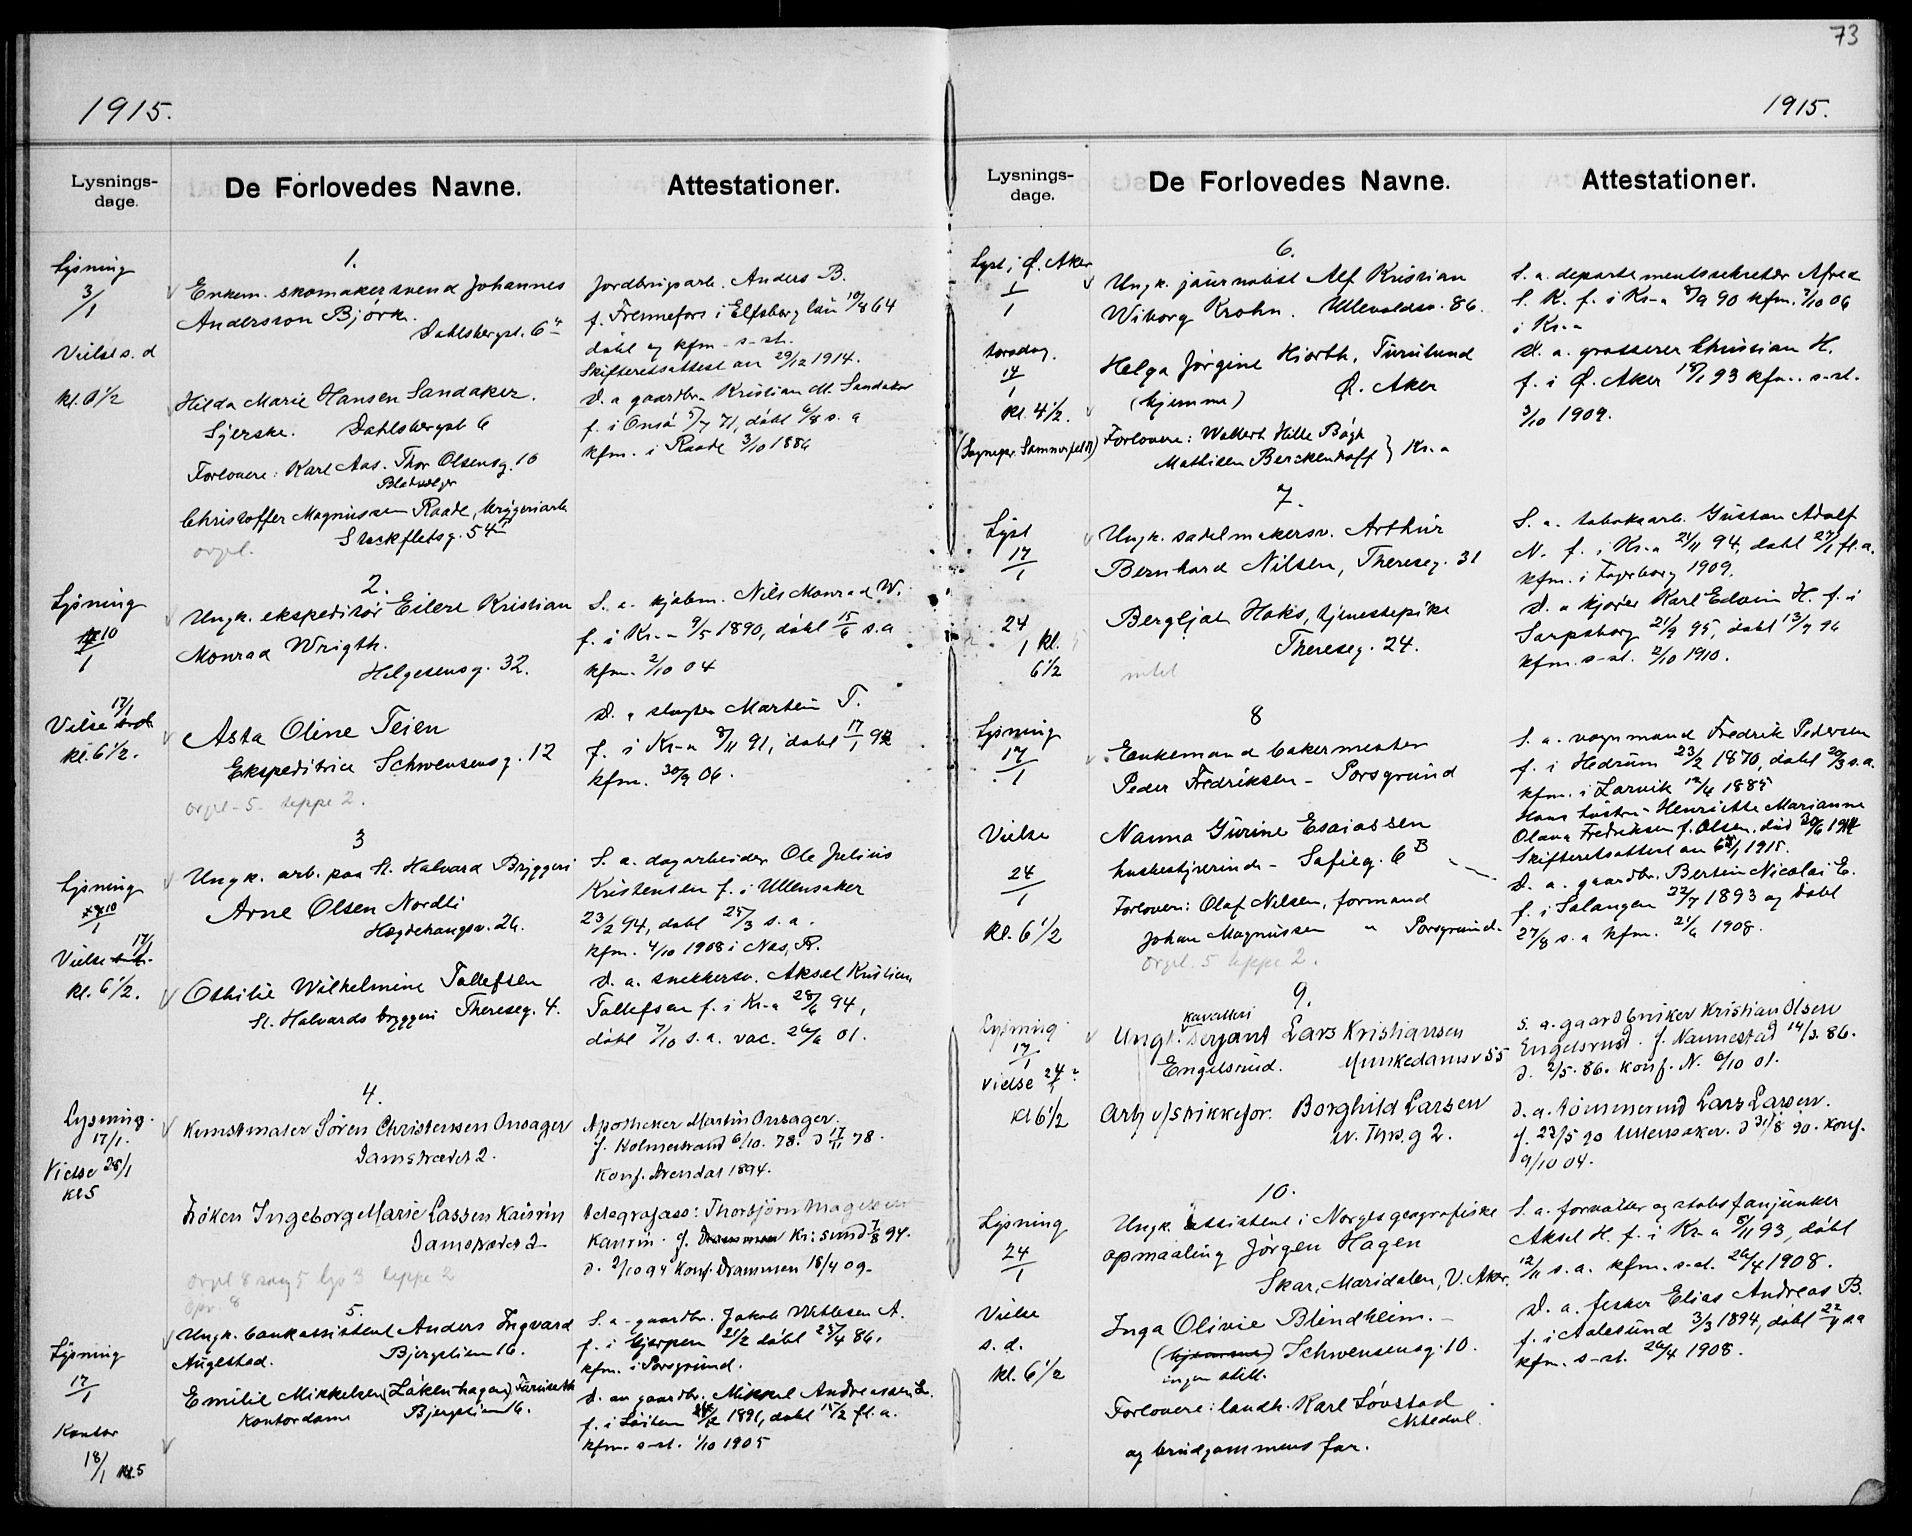 73
1915.
Lysnings-
dage.
De Forlovedes Navne.
Attestationer.
Lysning
3/1
Vielse s. d
kl. 6 1/2
1.
Enkem. skomakersvend Johannes
Andersson Björk.
Dahlsbergst. 6
Hilda Marie Hansen Sandaker.
Syerske. Dahlsbergst 6
Forlovere: Karl Aas. Thor Olsensg. 10
Christoffer Magnussen Raade, bryggeriarb
Stockfletsg. 54
orgel.
Jordbrugsarb. Anders B.
f. Frennefors i Elfsborg län 10/8 64
döbt og kfm. s-st.
Skifteretsattest av 29/12 1914.
D. a gaardbr. Kristian M. Sandaker
f. i Onsö 5/7 71, döbt 6/8 s. a
kfm. i Raade 3/10 1886
Lysning
10/1
Vielse 17/1
kl. 6 1/2.
2.
Ungk. ekspeditör Eilert Kristian
Monrad Wrigth.
Helgesensg. 32.
Asta Oline Teien
Ekspeditrice Schwensensg. 12
orgel - 5 - teppe 2.
S. a. kjøbm. Nils Monrad W.
f. i Kr.a 9/5 1890, döbt 15/6 s. a
kfm. 2/10 04
D. a slagter Martin T.
f. i Kr-a 8/11 91, döbt 17/1 92
kfm. 30/9 06.
Lysning
10/1
Vielse 17/1
kl. 6 1/2.
3
Ungk. arb. paa St. Halvard Bryggeri
Arne Olsen Nordli
Hegdehaugsv. 26.
Othilie Wilhelmine Tollefsen
St. Halvards bryggeri Thereseg. 4.
S. a. dagarbeider Ole Julius
Kristensen f. i Ullensaker
23/2 94, döbt 25/3 s. a.
kfm. 4/10 1908 i Nes, R.
D. a. snekkersv. Aksel Kristian
Tollefsen f. i Kr-a 28/6 94,
döbt 7/10 s. a. vac. 26/6 01.
Lysning.
17/1.
Vielse 28/1
kl 5
4.
Kunstmaler Sören Christensen Onsager
Damstrædet 2.
Fröken Ingeborg Marie Lassen Kaurin
Damstrædet 2
teppe 2
Apotheker Martin Onsager.
f. Holmestrand 6/10. 78. D 17/11 78.
Konf. Drendal 1894.
Telegrafass: Thorbjörn Magelssen
Kaurin. f. Kr: sund 7/8 94.
D. 9/10 94 Konf. Drammen 18/4 09.
Lysning
17/1
Kontor
18/1 kl. 5
5.
Ungk. bankassistent Anders Ingvard
Augestad. Bjergstien 16.
Emilie Mikkelsen (Løkenhagen)
Kontordame Bjergstien 16.
S. a - gaardbr. Jakob A.
f. i Gjerpen 21/2 döbt 25/4 86.
kfm. i Porsgrund.
D. av gaardbr. Mikkel Andreassen L.
f. i Löiten 1891, döbt 15/2 fl. a.
kfm. s-st. 1/10 1905
1915.
Lysnings-
dage.
De Forlovedes Navne.
Attestationer.
Lyst i Ø. Aker
1/1
torsdag.
14/1
kl. 4 1/2.
(Sognepr. Sommerfeldt)
6.
Ungk. journalist Alf Kristian
Wiborg Krohn. Ullevoldsv. 86.
Helga Jørgine Hiorth, Turulund
(hjemme) Ø. Aker
Forlovere: Waldert Hille Bögh
Mathisen Berckenhoff } Kr. a
S. a. departementssekretær Alfred
S. K. f. i Kr-a 8/9 90 kfm. 7/10 06
i Kr.a
D. a. grosserer Christian H.
f. i Ø. Aker 18/1 93 kfm. s-st.
3/10 1909.
Lyst
17/1
24/1 kl.
6 1/2
7.
Ungk. sadelmakersv. Arthur
Bernhard Nilsen, Thereseg. 31
Bergljot Hoks, tjenestepike
Thereseg. 24.
intet
S. a. tobaksarb. Gustav Adolf
N. f. i Kr.a 21/11 94, döbt 27/1 fl. a.
kfm. i Fagerborg 1909.
D. a kjører Karl Edvin H. f. i
Sarpsborg 21/9 95, döbt 13/9 96
kfm. s-st. 2/10 1910.
Lysning
17/1
Vielse
24/1
kl. 6 1/2
8
Enkemand bakermester
Peder Fredriksen - Porsgrund
Nanna Gurine Esaiassen
husbestyrerinde - Sofieg. 6 B
Forlovere: Olaf Nilsen, formand
Johan Magnussen " Porsgrund.
Orgel. 5 teppe 2.
S. a. vognmand Fredrik Pedersen
f. i Hedrum 23/2 1870, döbt 20/3 s. a.
kfm. i Larvik 12/4 1885
Hans hustru Henriette Marianne
Olava Fredriksen f. Olsen, död 30/6 1914
Skifteretsattest av 1915.
D. a. gaardbr. Bertin Nicolai E.
f. i Salangen 22/7 1893 og döbt
27/8 s. a kfm. 21/6 1908.
Lysning
17/1
Vielse 24/1 ?
kl 6 1/2
9.
kavalleri
Ungk. serjant Lars Kristiansen
Engelsrud. Munkedamsv 55
Arb. v/strikkefor. Borghild Larsen
N. Thrs. g 2.
S. a. gaardbruker Kristian Olsen
Engelsrud. f. Nannestad 14/3. 86.
D. 2/5. 86. konf. N. 6/10 01.
D. a. tömmermd Lars Larsen.
f. 23/5 90 Ullensaker. D 31/8 90. Konf.
9/10 04.
Lysning
24/1
Vielse
s. d.
kl. 6 1/2
10.
Ungk. assistent i Norges geografiske
opmaaling Jørgen Hagen
Skar, Maridalen, V. Aker.
Inga Olivie Blindheim.
(hjemme) Schwensensg. 10.
ingen still.
Forlovere: landh. Karl Lövstad
Nitedal.
og brudgommens far.
S. a. forvalter og stabsfanjunker
Aksel H. f. i Kr-a 5/11 93, döbt
12/11 s. a. kfm. s-st. 26/4 1908.
D. a. fisker Elias Andreas B.
f. i Aalesund 3/3 1894, döbt 22/4 s a
kfm. s-st. 26/4 1908.